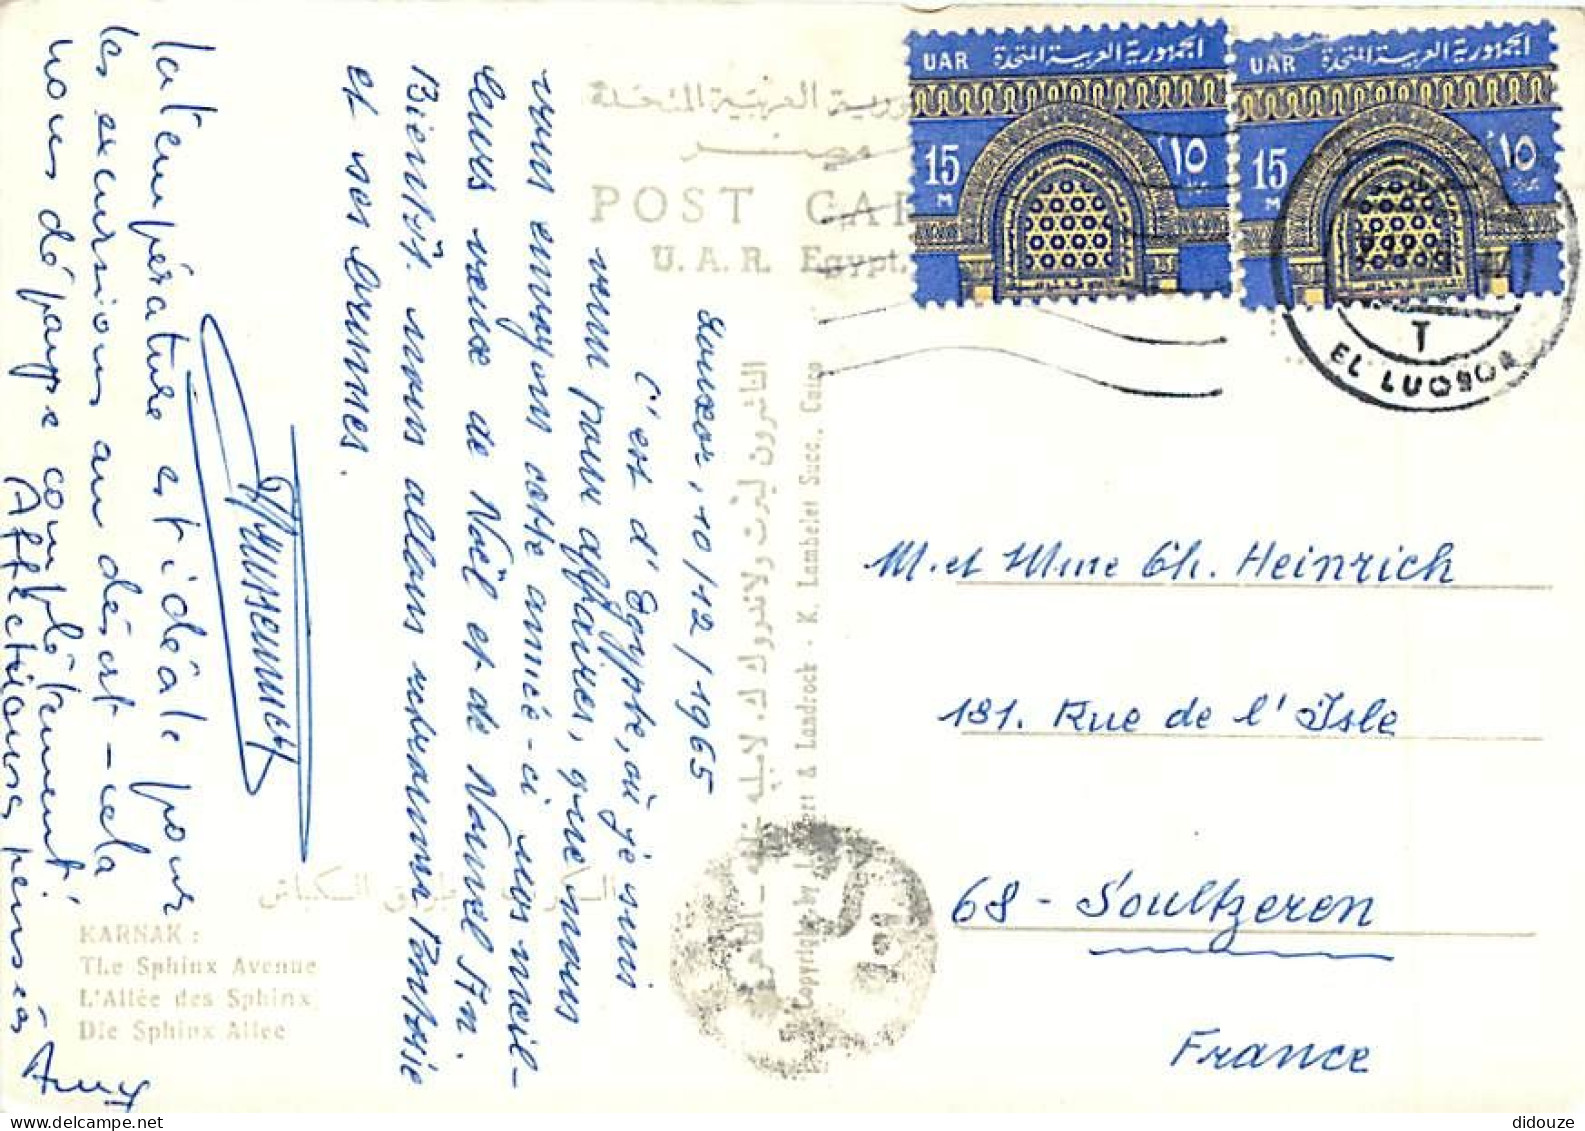 UAR الجمهورية العربية المتحدة
15 M ١٥
UAR الجمهورية العربية المتحدة
15 M ١٥
T
EL LUQSOR
العربية المتحدة
مصر
POST CAR
U. A. R. Egypt.
Louxor, 10/12/1965
C'est d'Egypte, où je suis
venu pour affaires, que nous
vous envoyons cette année-ci nos meil-
leurs vœux de Noël et de Nouvel An.
Bientôt nous allons retrouver
et ses brumes.
La température est idéale pour
les excursions au désert - cela
nous dépayse complètement!
Affectueuses pensées
M. et Mme Ch. Heinrich
131. Rue de l'Isle
68 - Soultzeren
France
KARNAK :
The Sphinx Avenue
L'Allée des Sphinx
Die Sphinx Allee
Copyright by & Landrock - K. Lambelet Succ., Cairo
didouze